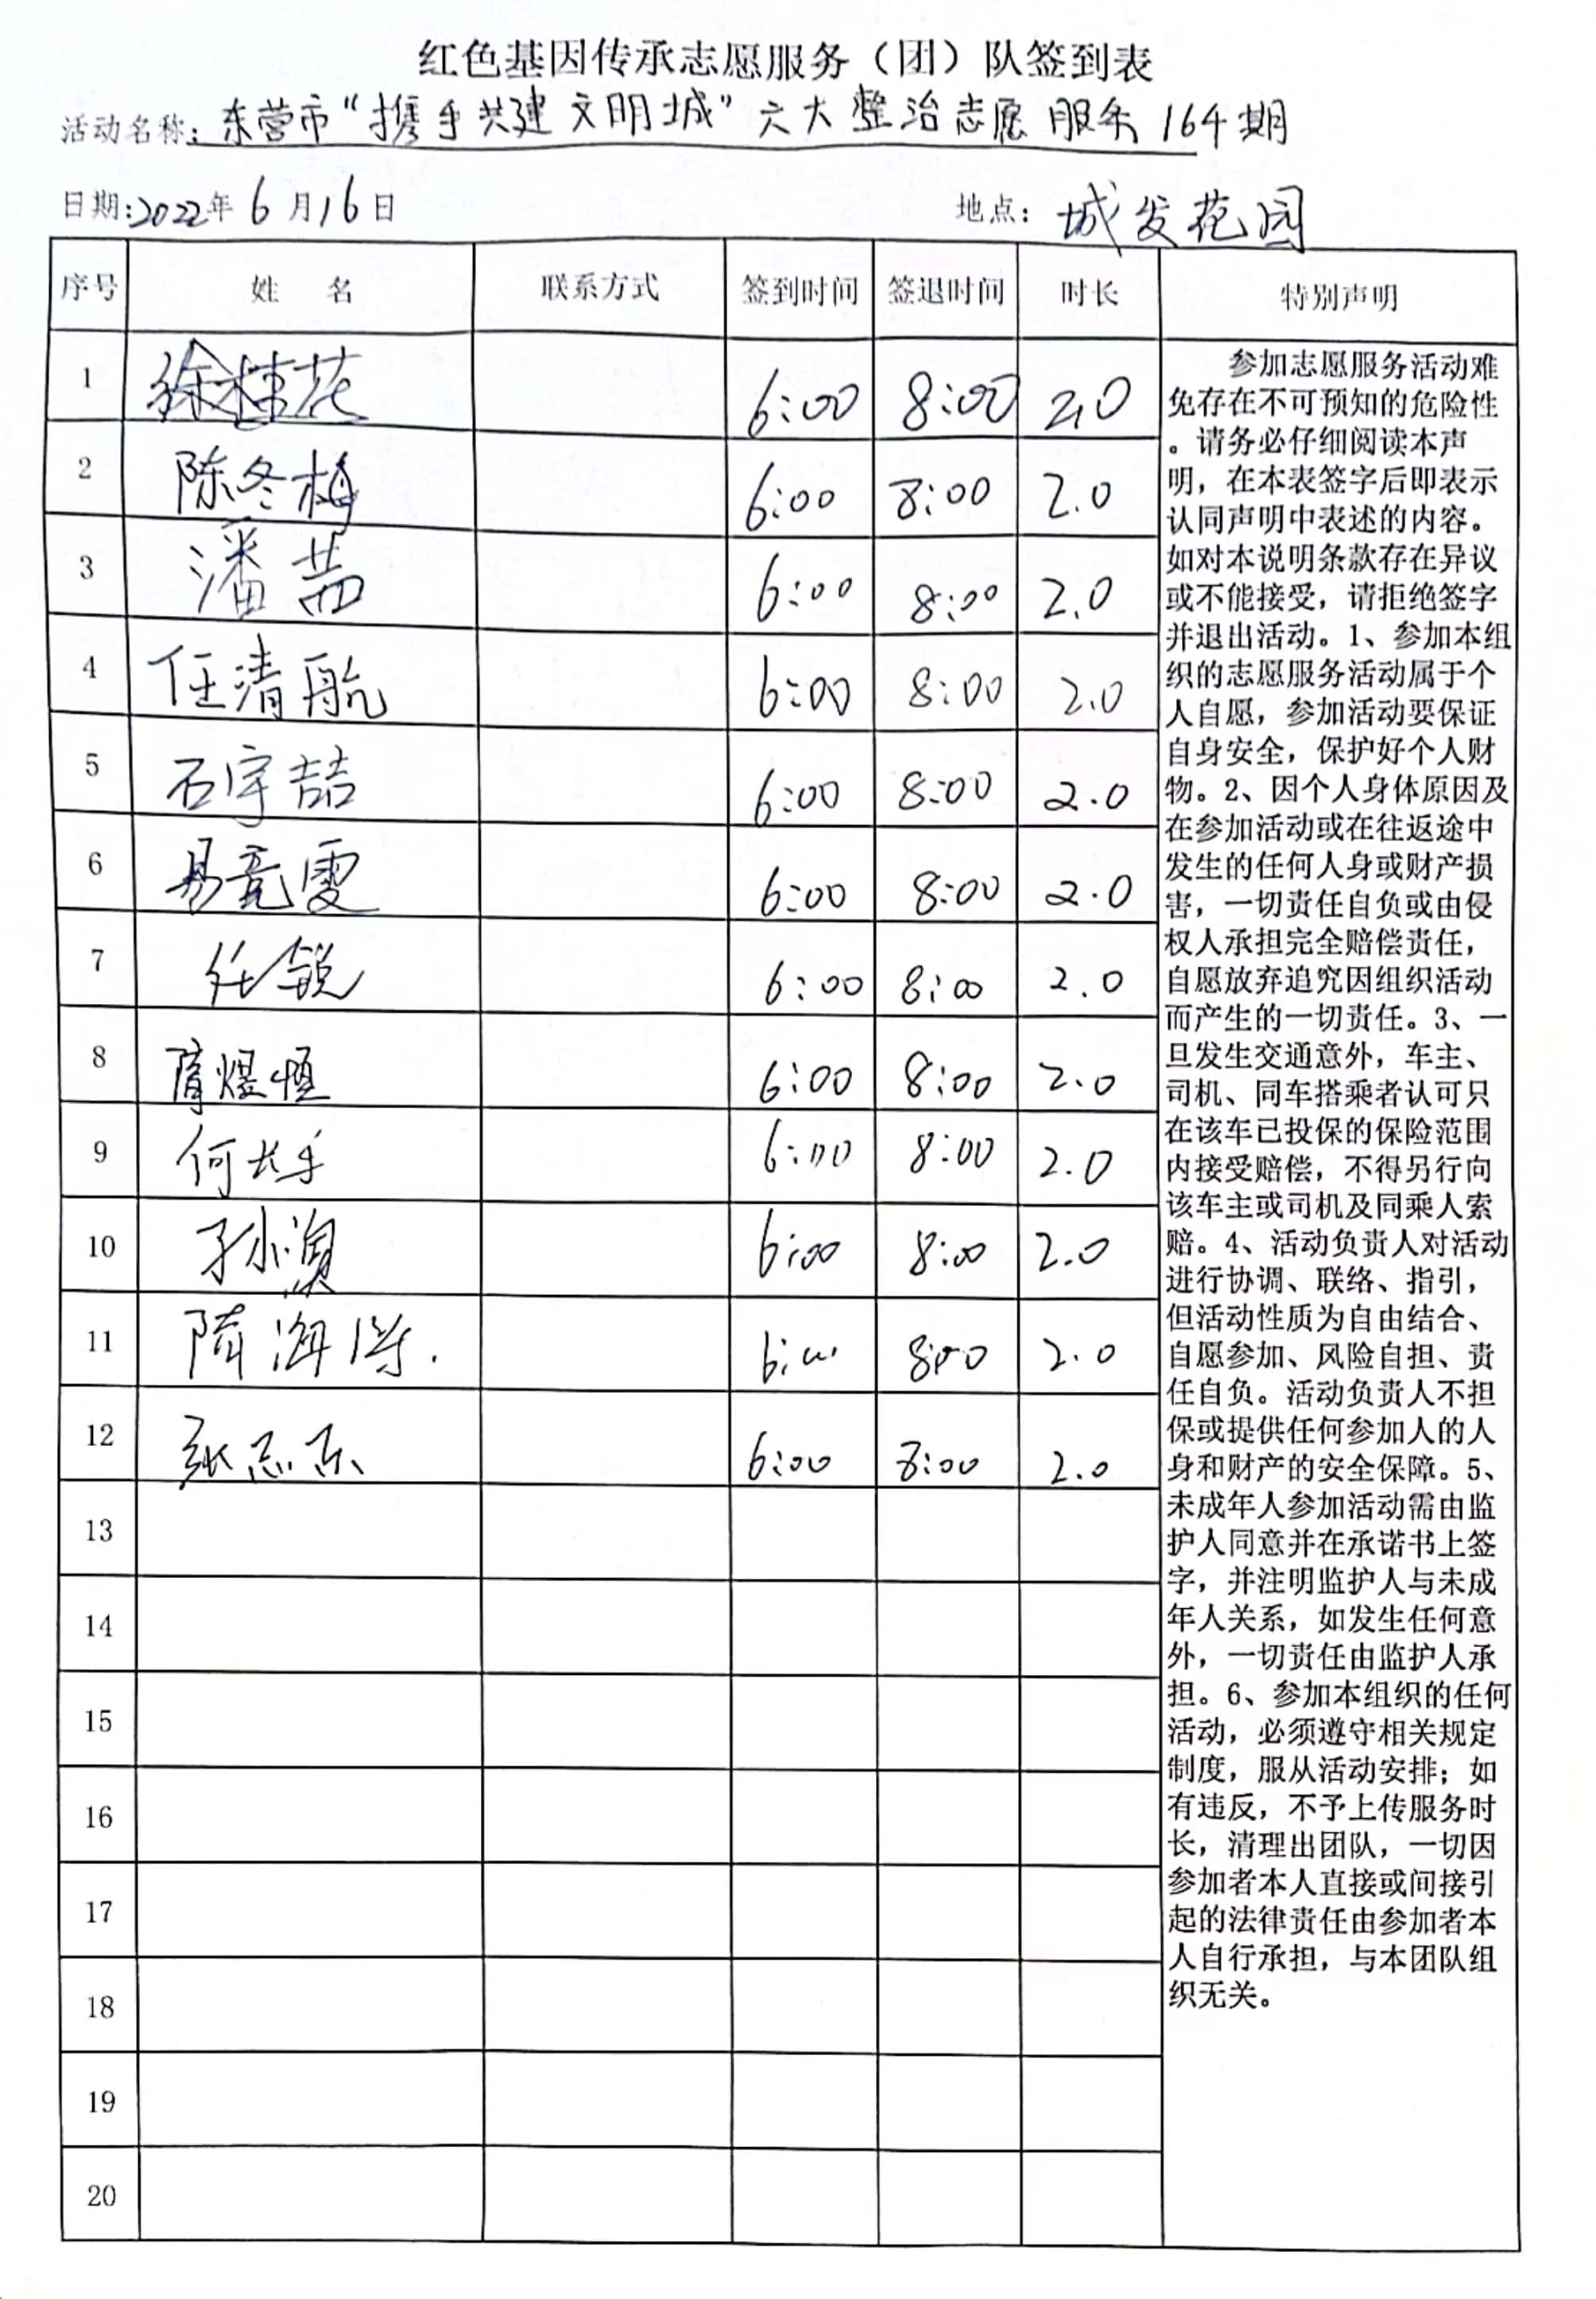 红色基因传承志愿服务（团）队签到表
活动名称：东营市“携手共建文明城”六大整治志愿服务164期
日期:2022年6月16日 地点：城发花园
序号 姓 名 联系方式 签到时间 签退时间 时长 特别声明
1 徐桂花 6:00 8:00 2.0
2 陈冬梅 6:00 8:00 2.0
3 潘茹 6:00 8:00 2.0
4 任清航 6:00 8:00 2.0
5 石宇喆 6:00 8:00 2.0
6 易竞雯 6:00 8:00 2.0
7 任锐 6:00 8:00 2.0
8 隋煜恒 6:00 8:00 2.0
9 何长手 6:00 8:00 2.0
10 孙澳 6:00 8:00 2.0
11 隋海涛. 6:00 8:00 2.0
12 张志东 6:00 8:00 2.0
13
14
15
16
17
18
19
20
参加志愿服务活动难
免存在不可预知的危险性
。请务必仔细阅读本声
明，在本表签字后即表示
认同声明中表述的内容。
如对本说明条款存在异议
或不能接受，请拒绝签字
并退出活动。1、参加本组
织的志愿服务活动属于个
人自愿，参加活动要保证
自身安全，保护好个人财
物。2、因个人身体原因及
在参加活动或在往返途中
发生的任何人身或财产损
害，一切责任自负或由侵
权人承担完全赔偿责任，
自愿放弃追究因组织活动
而产生的一切责任。3、一
旦发生交通意外，车主、
司机、同车搭乘者认可只
在该车已投保的保险范围
内接受赔偿，不得另行向
该车主或司机及同乘人索
赔。4、活动负责人对活动
进行协调、联络、指引，
但活动性质为自由结合、
自愿参加、风险自担、责
任自负。活动负责人不担
保或提供任何参加人的人
身和财产的安全保障。5、
未成年人参加活动需由监
护人同意并在承诺书上签
字，并注明监护人与未成
年人关系，如发生任何意
外，一切责任由监护人承
担。6、参加本组织的任何
活动，必须遵守相关规定
制度，服从活动安排；如
有违反，不予上传服务时
长，清理出团队，一切因
参加者本人直接或间接引
起的法律责任由参加者本
人自行承担，与本团队组
织无关。